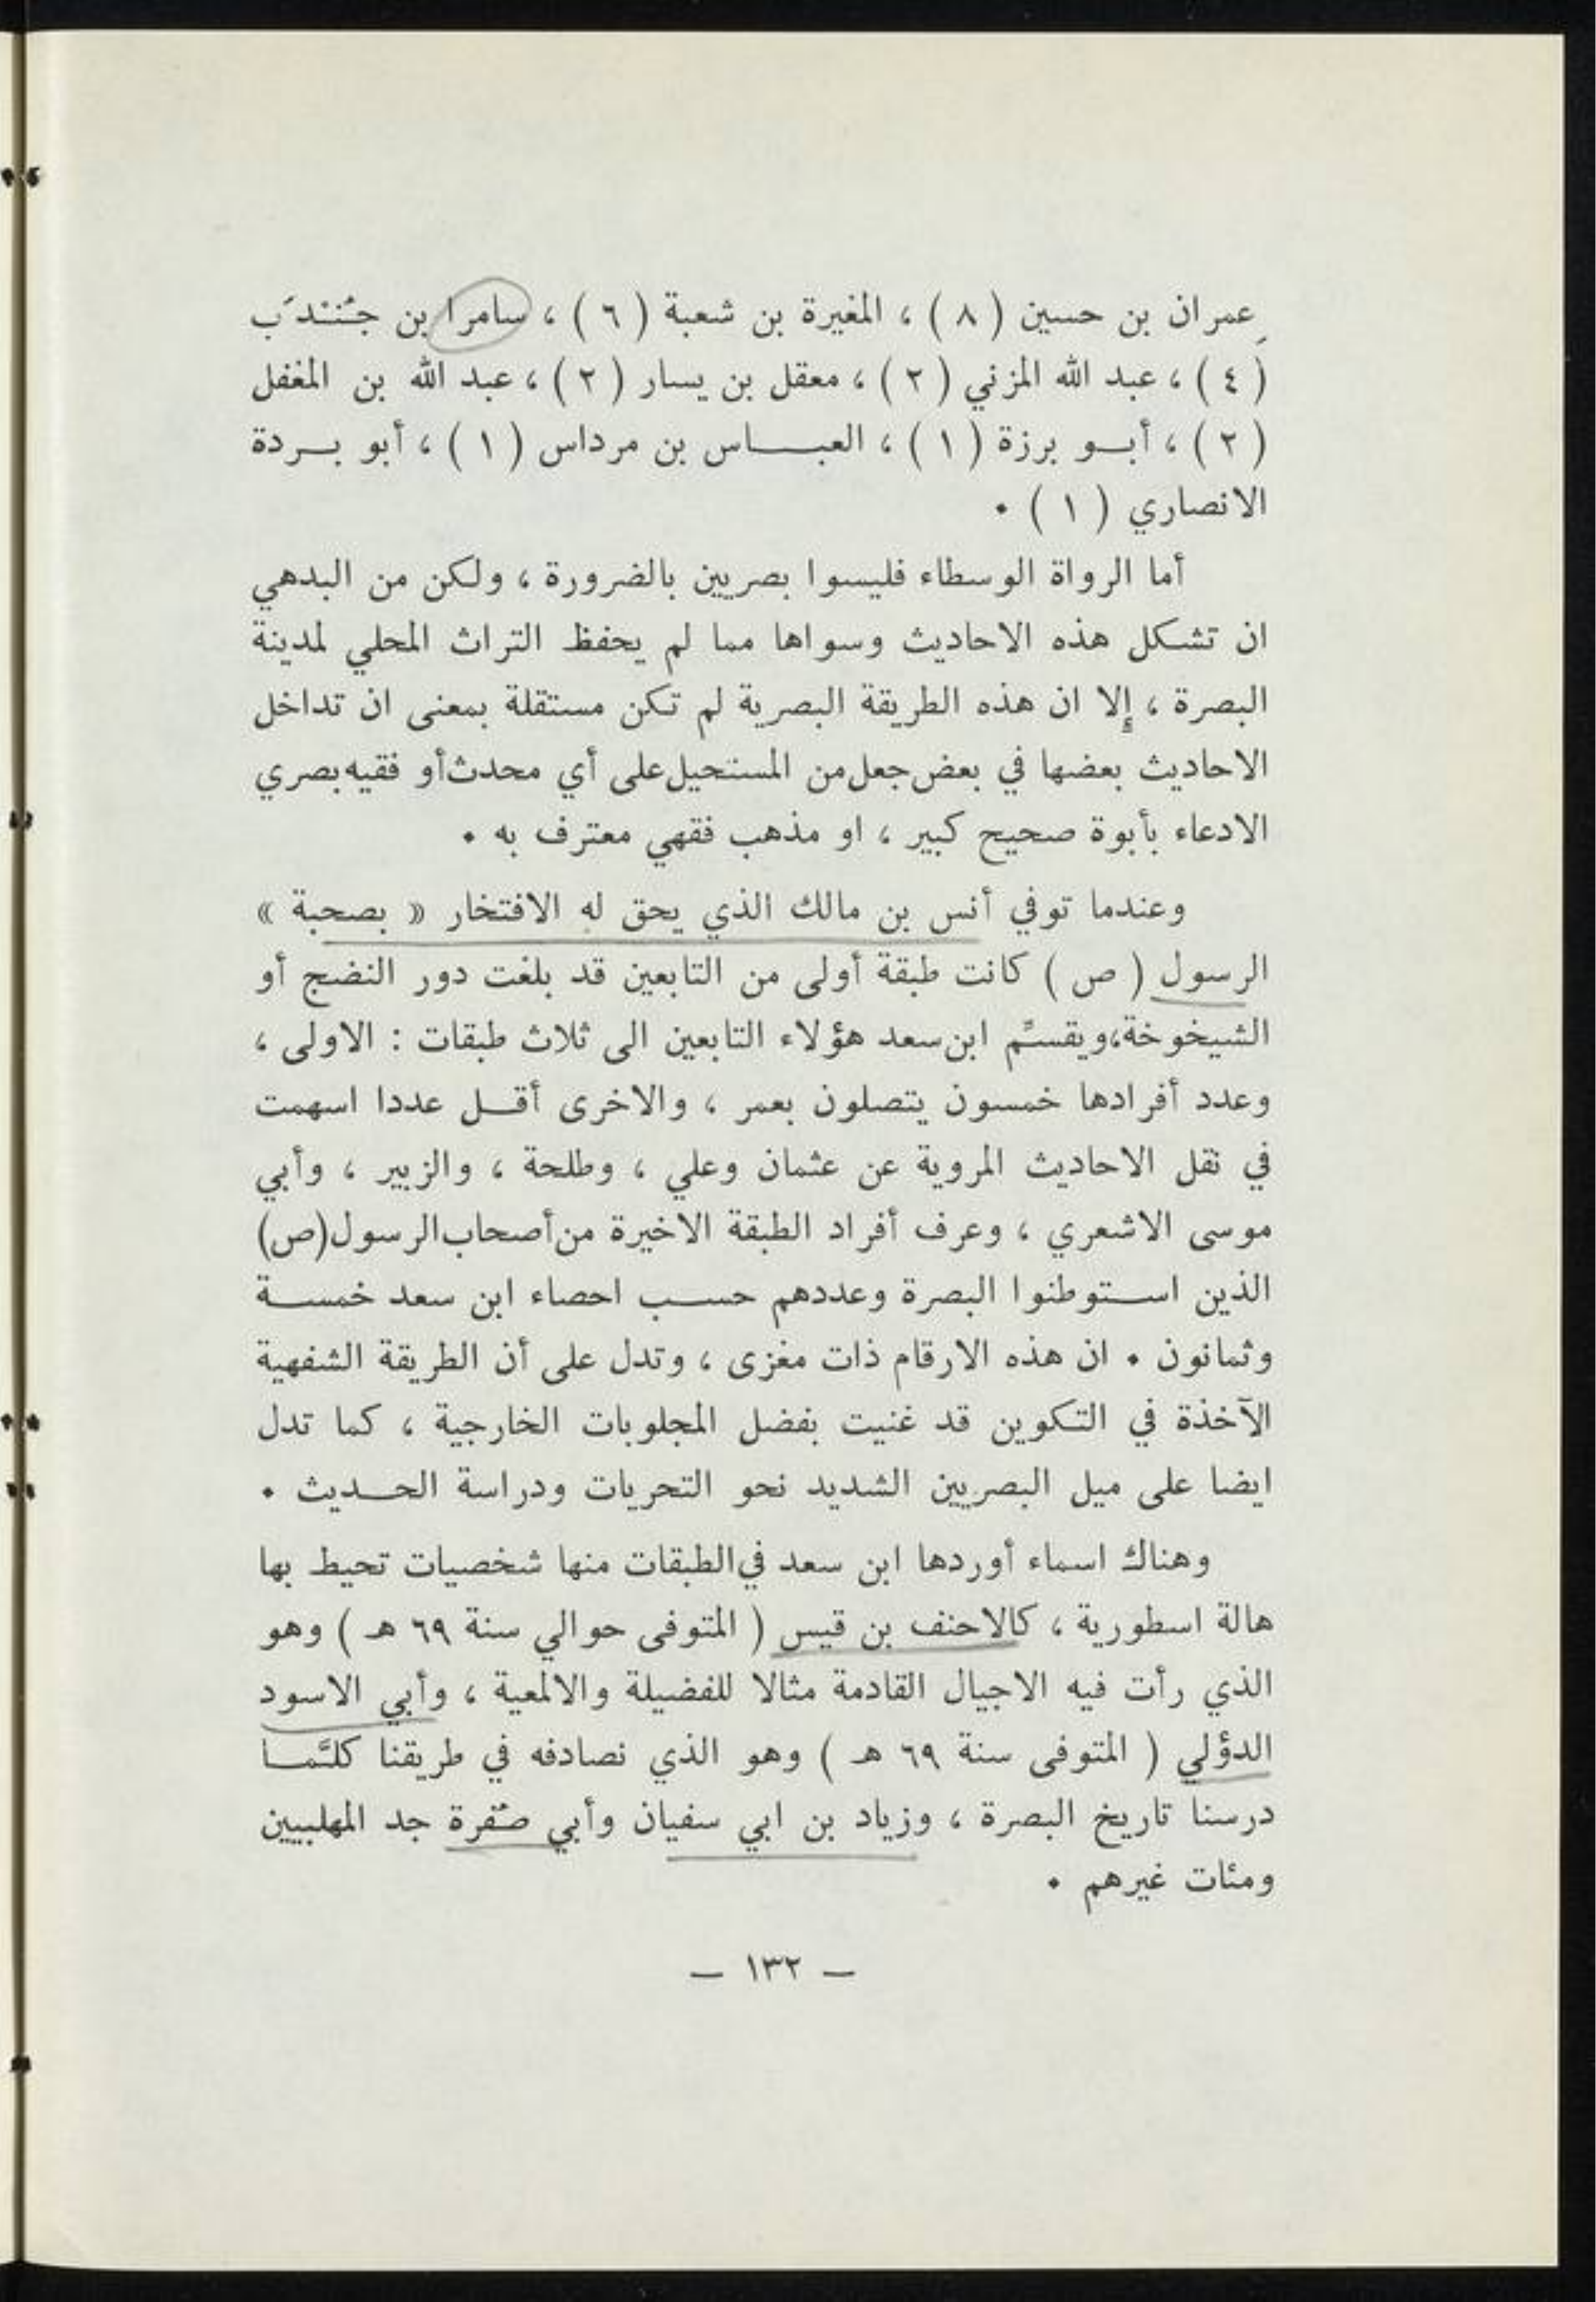 عِمران بن حسين ( ٨ ) ، المغيرة بن شعبة ( ٦ ) ، سامرا بن جُنْدَب
( ٤ ) ، عبد الله المزني ( ٢ ) ، معقل بن يسار ( ٢ ) ، عبد الله بن المغفل
( ٢ ) ، أبو برزة ( ١ ) ، العباس بن مرداس ( ١ ) ، أبو بردة
الانصاري ( ١ ) .
أما الرواة الوسطاء فليسوا بصريين بالضرورة ، ولكن من البدهي
ان تشكل هذه الاحاديث وسواها مما لم يحفظ التراث المحلي لمدينة
البصرة ، إلا ان هذه الطريقة البصرية لم تكن مستقلة بمعنى ان تداخل
الاحاديث بعضها في بعض جعل من المستحيل على أي محدث أو فقيه بصري
الادعاء بأبوة صحيح كبير ، او مذهب فقهي معترف به .
وعندما توفي أنس بن مالك الذي يحق له الافتخار « بصحبة »
الرسول ( ص ) كانت طبقة أولى من التابعين قد بلغت دور النضج أو
الشيخوخة، ويقسِّم ابن سعد هؤلاء التابعين الى ثلاث طبقات : الاولى ،
وعدد أفرادها خمسون يتصلون بعمر ، والاخرى أقل عددا اسهمت
في نقل الاحاديث المروية عن عثمان وعلي ، وطلحة ، والزبير ، وأبي
موسى الاشعري ، وعرف أفراد الطبقة الاخيرة من أصحاب الرسول (ص)
الذين استوطنوا البصرة وعددهم حسب احصاء ابن سعد خمسة
وثمانون . ان هذه الارقام ذات مغزى ، وتدل على أن الطريقة الشفهية
الآخذة في التكوين قد غنيت بفضل المجلوبات الخارجية ، كما تدل
ايضا على ميل البصريين الشديد نحو التحريات ودراسة الحديث .
وهناك اسماء أوردها ابن سعد في الطبقات منها شخصيات تحيط بها
هالة اسطورية ، كالاحنف بن قيس ( المتوفى حوالي سنة ٦٩ هـ ) وهو
الذي رأت فيه الاجيال القادمة مثالا للفضيلة والالمعية ، وأبي الاسود
الدؤلي ( المتوفى سنة ٦٩ هـ ) وهو الذي نصادفه في طريقنا كلَّما
درسنا تاريخ البصرة ، وزياد بن ابي سفيان وأبي صُفرة جد المهلبيين
ومئات غيرهم .
— ١٣٢ —